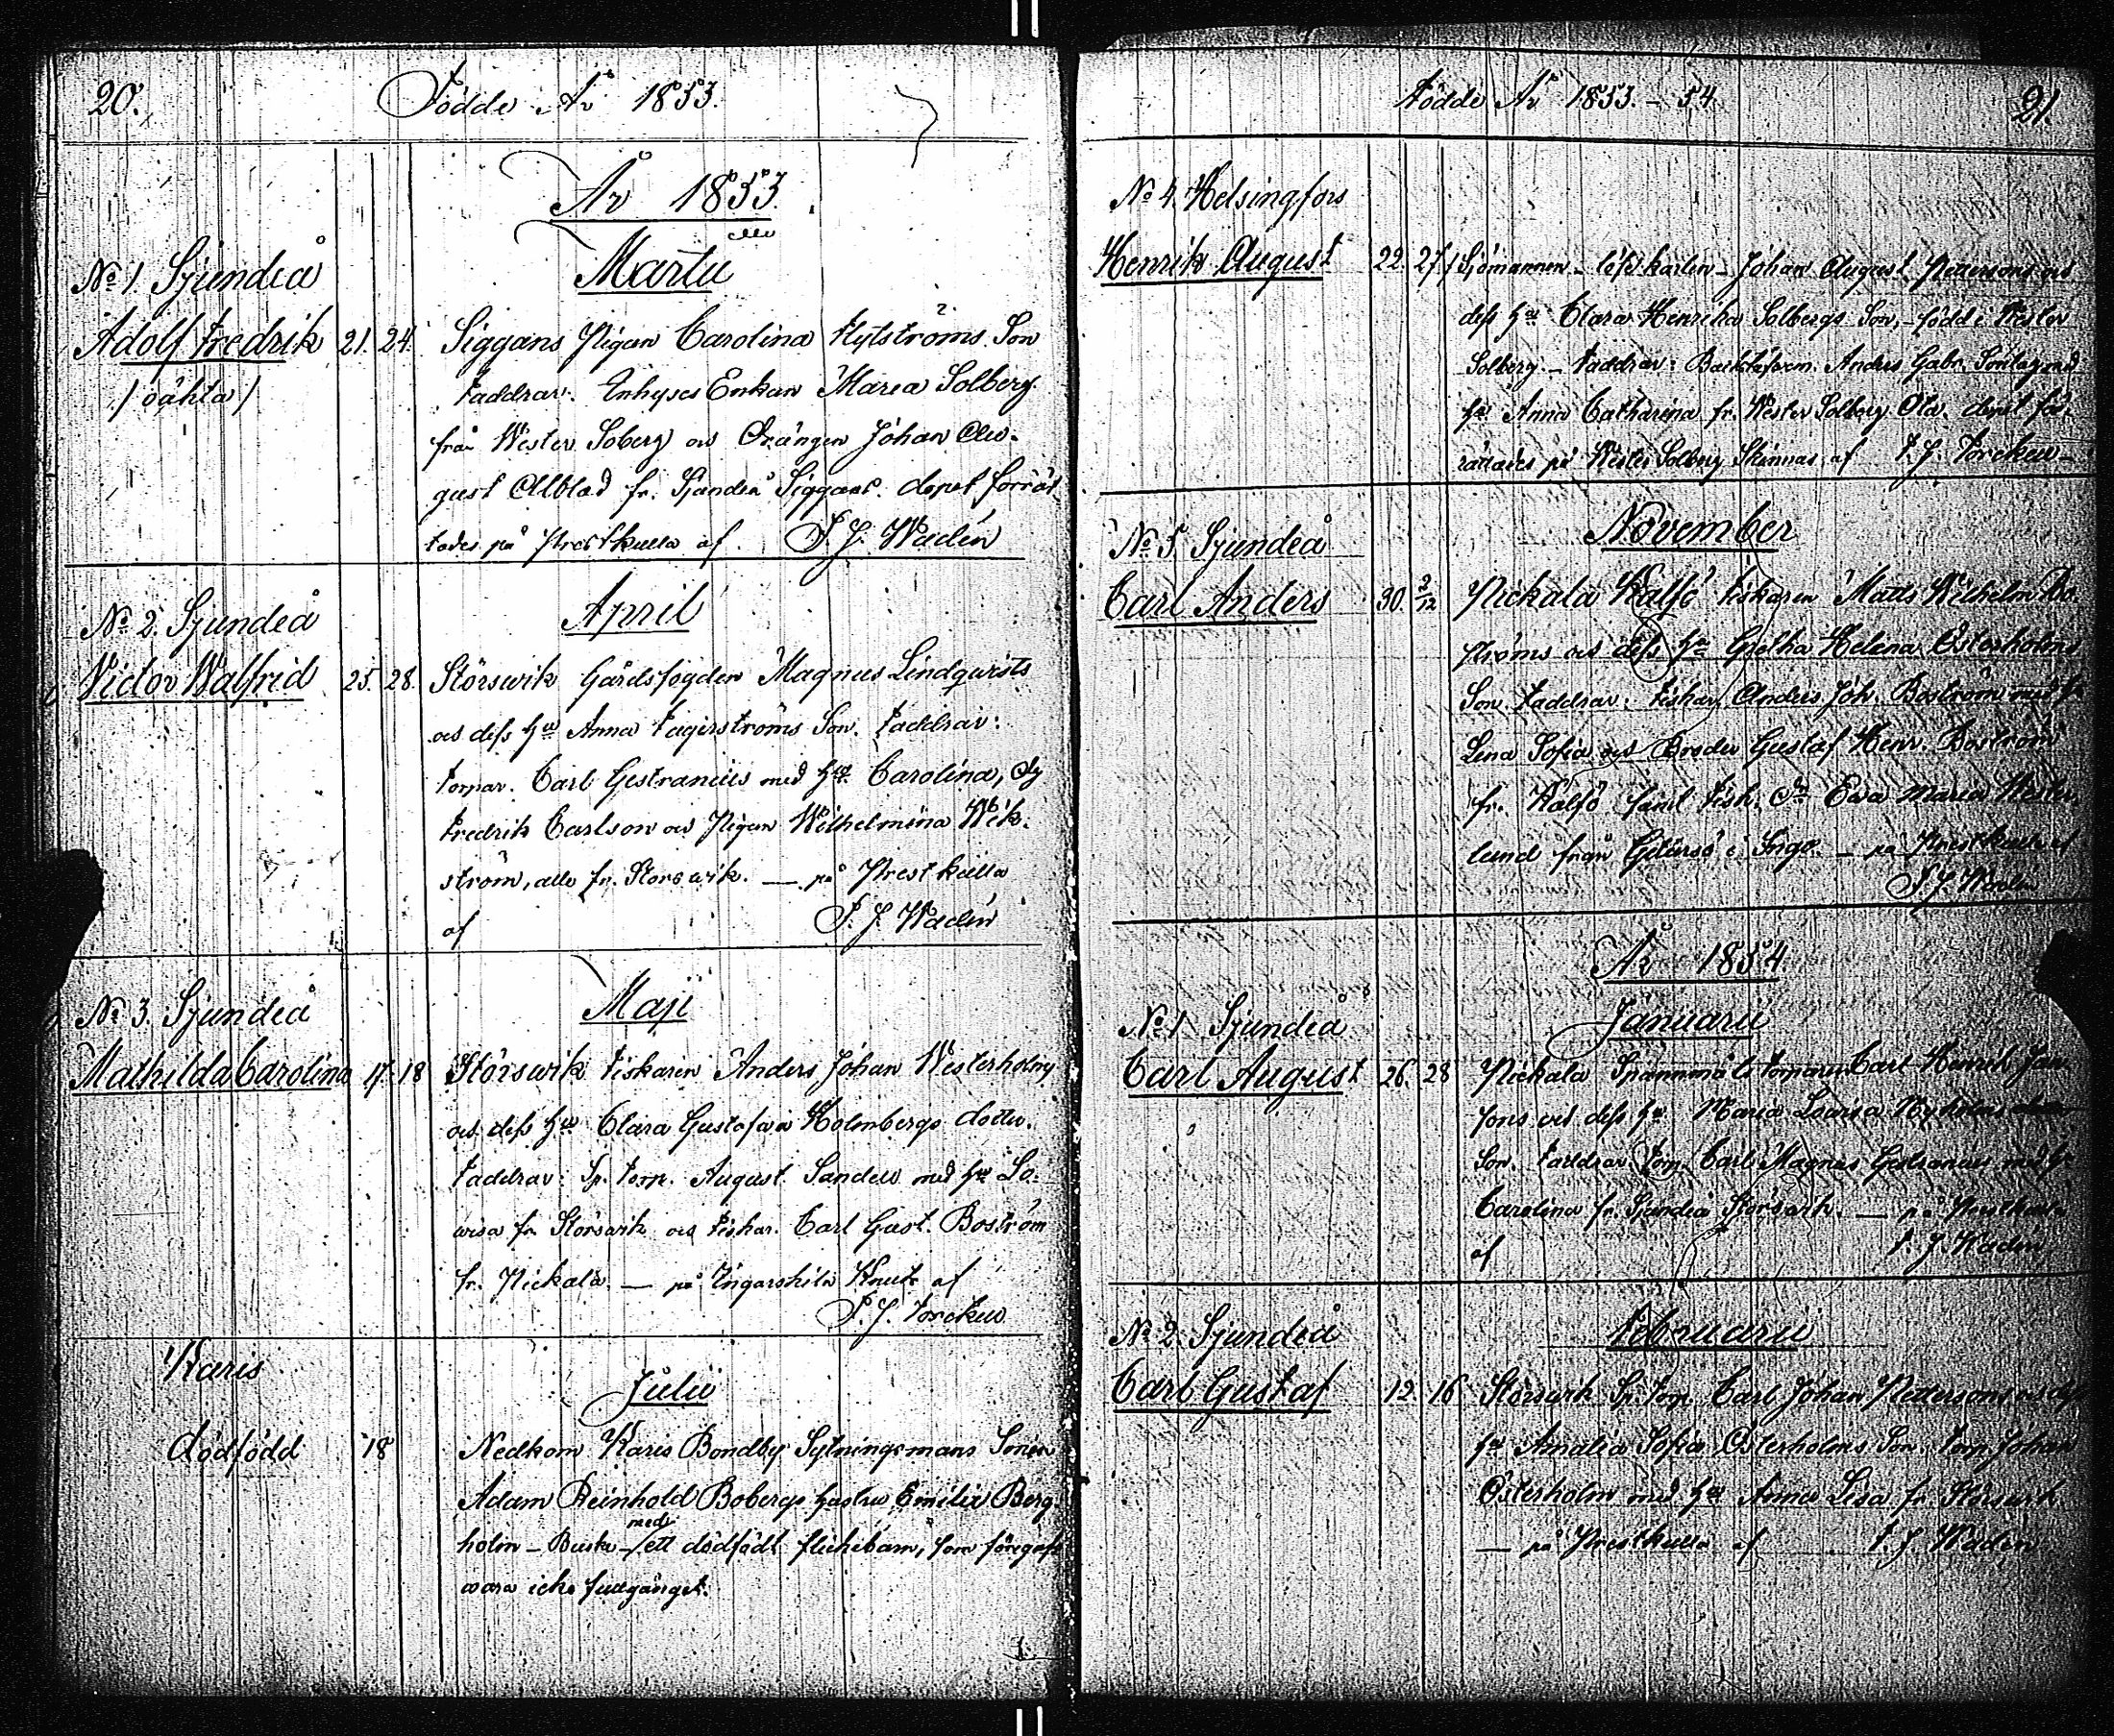 20. Födde År 1853.
År 1853.
Martii
No 1. Sjundeå
Adolf Fredrik 21. 24. Siggans Pigan Carolina Flytströms Son
/oäkta/ Faddrar: Inhyses Enkan Maria Solberg
från Wester Soberg och Drängen Johan Au-
gust Alblad fr. Sjundeå Siggans. dopet förrät-
tades på Prestkulla af F. J. Wadén
No 2. Sjundeå April
Victor Walfrid 25. 28. Störswik Gårdsfogden Magnus Lindqwists
och dess hu Anna Fagerströms Son. Faddrar:
torpar. Carl Gestranius med hu Carolina,
Fredrik Carlson och Pigan Wilhelmina Wik-
ström, alla fr. Störswik. — på Prestkulla
af F. J. Wadén
No 3. Sjundeå Maji
Mathilda Carolina 17. 18 Störswik Fiskaren Anders Johan Westerholms
och dess hu Clara Gustafava Holmbergs dotter.
Faddrar: Sp. torp. August Sandell med hu Lo-
wisa fr. Störswik och Fiskar. Carl Gust. Boström
fr. Pickala. — på Ingarskila Knuts af
F. J. Forckell
Karis
Julii
dödfödd 18 Nedkom Karis Bondby Sytningsmans Sonen
Adam Reinhold Bobergs hustru Emilia Berg-
holm – – med ett dödfödt flickebarn, som föregafs
wara icke fullgånget.
Födde År 1853. – 54. 21.
No 4. Helsingfors
Henrik August 22. 27. Sjömannen – – Johan August Pettersons och
dess hu Clara Henrika Solbergs Son, – född i Wester
Solberg. – Faddrar: Anders Gabr. med
hu Anna Catharina fr. Wester Solberg dopet för-
rättades på Wester Solberg Skinnas af F. J. Forckell
November
No 5. Sjundeå
Carl Anders 30. 2/12 Pickala Kalfö Fiskaren Matts Wilhelm Bo-
ströms och dess hu Gretha Helena Österholms
Son. Faddrar: Fiskar. Anders Joh. Boström med hu
Lena Sofia och Broder Gustaf Henr. Boström
fr. Kalfö samt Fisk. Ewa Maria Wester-
lund från i Ingo. — på Prestkulla af
F. J. Wadén
År 1854.
Januarii
No 1. Sjundeå
Carl August 26. 28 Pickala Spannmåls torparen Carl Henrik Jan-
sons och dess hu Maria Lovisa Nyholms
Son. Faddrar: Torp. Carl Magnus Gestranius med hu
Carolina fr. Sjundeå Störswik. — på Prestkulla
af F. J. Wadén
No 2. Sjundeå Februarii
Carl Gustaf 12. 16 Störswik Sp. torp. Carl Johan Pettersons och dess
hu Amalia Sofia Österholms Son. torp. Johan
Österholm med hu Anna Lisa fr. Störswik
— på Prestkulla af F. J. Wadén